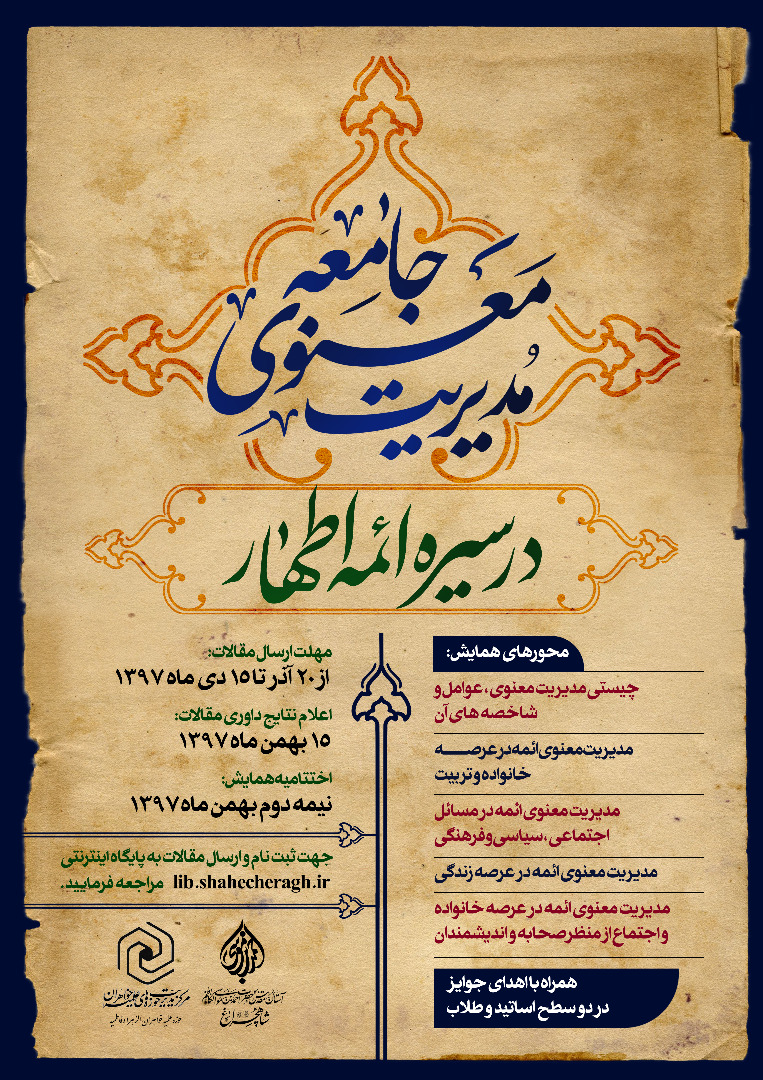 مدیریت
معنوی
جامعه
در سیره ائمه اطهار
محورهای همایش:
چیستی مدیریت معنوی، عوامل و
شاخصه های آن
مدیریت معنوی ائمه در عرصه
خانواده و تربیت
مدیریت معنوی ائمه در مسائل
اجتماعی، سیاسی و فرهنگی
مدیریت معنوی ائمه در عرصه زندگی
مدیریت معنوی ائمه در عرصه خانواده
و اجتماع از منظر صحابه و اندیشمندان
همراه با اهدای جوایز
در دو سطح اساتید و طلاب
مهلت ارسال مقالات:
از ۲۰ آذر تا ۱۵ دی ماه ۱۳۹۷
اعلام نتایج داوری مقالات:
۱۵ بهمن ماه ۱۳۹۷
اختتامیه همایش:
نیمه دوم بهمن ماه ۱۳۹۷
جهت ثبت نام و ارسال مقالات به پایگاه اینترنتی
lib.shahecheragh.ir مراجعه فرمایید.
شاهچراغ
مرکز مدیریت حوزه های علمیه خواهران